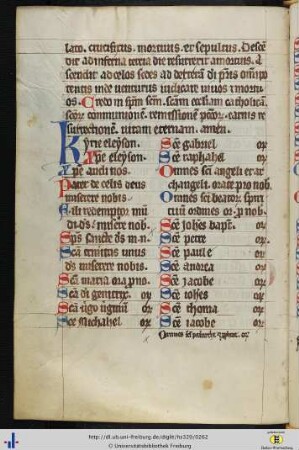 lato. crucifixus. mortuus. et sepultus. Descen
dit ad inferna tercia die resurrexit a mortuis. A
scendit ad celos sedet ad dexteram dei pris omnipo
tentis inde venturus iudicare vivos et mortu
os. Credo in spm scm. scam eccliam catholicā.
scor communionē. remissionē peccor. carnis re
surrectionē. vitam eternam. amen.
Kyrie eleyson.
Xpe eleyson.
Xpe audi nos.
Pater de celis deus
miserere nobis.
Fili redemptor mū
di ds miserere nob.
Sps sancte ds m. n.
Scā trinitas unus
ds miserere nobis.
Scā maria ora p nos.
Scā di genitrix. or
Scā virgo virginū or
Sce Michahel or
Sce gabriel or
Sce raphahel or
Omnes sci angeli et ar
changeli. orate pro nob.
Omnes sci beator spiri
tuū ordines or. p nob.
Sce iohes bapt. or
Sce petre or
Sce paule or
Sce andrea or
Sce iacobe or
Sce iohes or
Sce thoma or
Sce iacobe or
http://dl.ub.uni-freiburg.de/diglit/hs320/0262
© Universitätsbibliothek Freiburg